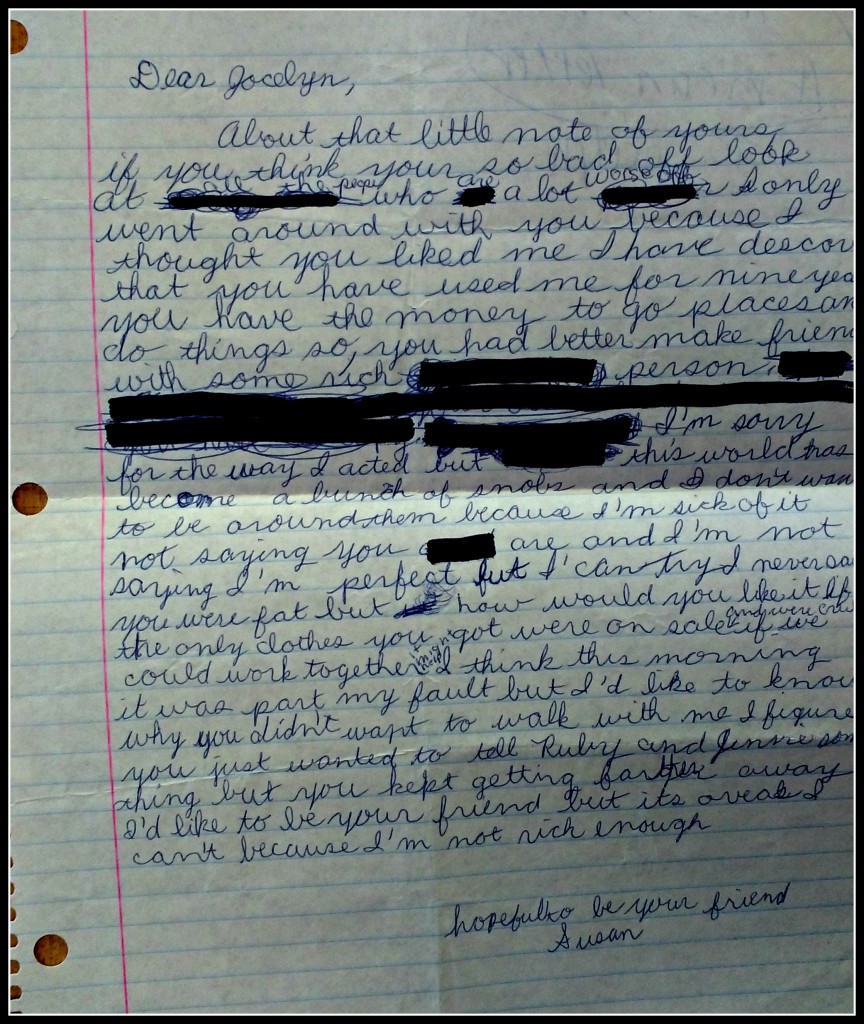 Dear Jocelyn,
About that little note of yours,
if you think your so bad off look
at all the people who are a lot worse off r I only
went around with you because I
thought you liked me I have descov
that you have used me for nine yea
you have the money to go places an
do things so, you had better make frien
with some rich person
I'm sorry
for the way I acted but this world has
become a bunch of snobs and I don't wan
to be around them because I'm sick of it
not saying you are and I'm not
saying I'm perfect but I can try I never sa
you were fat but how would you like it if
the only clothes you got were on sale and were if we
could work together it might help I think this morning
it was part my fault but I'd like to know
why you didn't want to walk with me I figure
you just wanted to tell Ruby and Jennie som
thing but you kept getting farther away
I'd like to be your friend but its I
can't because I'm not rich enough
hopefull to be your friend
Susan